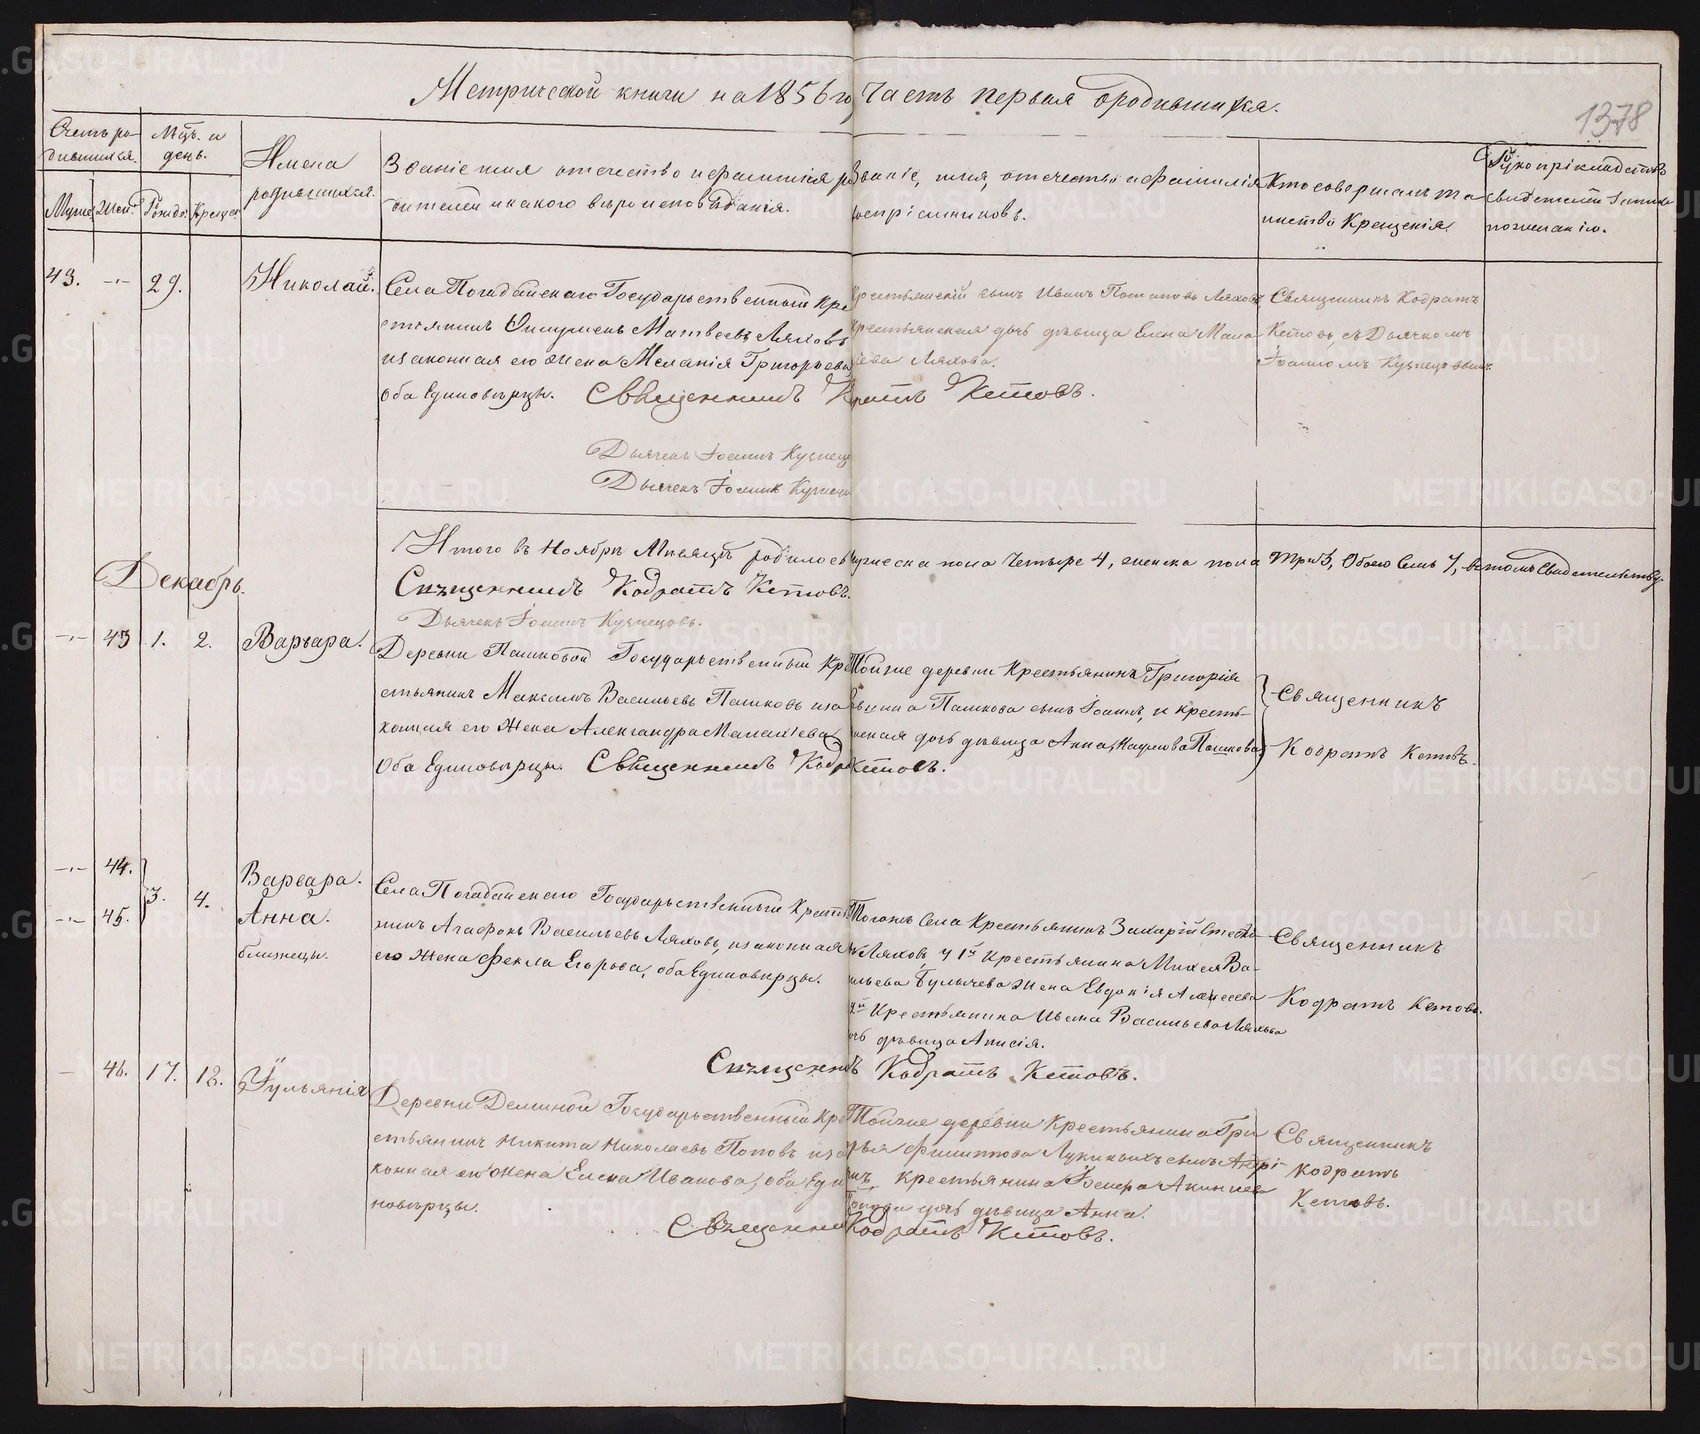 Метрической книги на 1856 го Часть первая о родившихся.
1378
Счетъ ро-
дившихся.
Мцъ. и
день.
Имена
родившихся.
Званіе имя отечество и фамилія ро
дителей и какого вѣроисповѣданія.
Званіе, имя, отечество и фамилія
воспріемниковъ.
Кто совершалъ та
инство Крещенія
Рукоприкладство
свидетелей записи
по желанію.
Муже Жен. Рожде. Креще
43. -"- 29. Николай.
Села Погадайскаго Государственный Кре
стьянинъ Матвеевъ Ляховъ
и законная его жена Меланія Григорьева
оба Единовѣрцы. Священникъ Кодратъ Кетовъ.
Крестьянскій сынъ Иванъ Потаповъ Ляховъ
Крестьянская дочь дѣвица Елена
Ляхова.
Священникъ Кодратъ
Кетовъ, съ Дьячкомъ
Іоанномъ Кузнецовымъ
Дьячекъ Іоаннъ Кузнецо
Дьячекъ Іоаннъ Кузнецо
Итого въ Ноябрѣ Мѣсяцѣ родилось мужеска пола Четыре 4, женска пола Три 3, Обоего Семь 7, въ томъ Свидетельству
Священникъ Кодратъ Кетовъ.
Дьячекъ Іоаннъ Кузнецовъ.
Декабрь.
-"- 43 1. 2. Варвара.
Деревни Пашковой Государственный Кре
стьянинъ Максимъ Васильевъ Пашковъ и за
конная его Жена Александра Малахіева
Оба Единовѣрцы. Священникъ Кодратъ Кетовъ.
Тойже деревни Крестьянина Григорія
Пашкова сынъ Іоаннъ, и кресть-
янская дочь дѣвица Анна Наумова Пашкова
Священникъ
Кодратъ Кетовъ.
-"- 44. Варвара.
3. 4.
-"- 45. Анна.
близнецы.
Села Погадайскаго Государственный Крестья
нинъ Агафонъ Васильевъ Ляховъ, и законная
его Жена Фекла Егорова, оба Единовѣрцы.
Тогожъ Села Крестьянинъ Захарій
Ляховъ, у 1й Крестьянина Михея Ва-
сильева Булычева жена Евдокія Алексеева
2й Крестьянина Ивана Васильева Ляхова
дочь дѣвица Анисія.
Священникъ
Кодратъ Кетовъ.
Священникъ Кодратъ Кетовъ.
- 46. 17. 18. Іульянія
Деревни Деминой Государственный Кре
стьянинъ Никита Николаевъ Поповъ и за
конная его Жена Елена Иванова, оба Еди
новѣрцы.
Тойже деревни Крестьянина Гри
горья Филиппова Лукиныхъ сынъ Андрі
янъ, Крестьянина Акинѳіева
Попова дочь дѣвица Анна.
Священникъ
Кодратъ
Кетовъ.
Священникъ Кодратъ Кетовъ.
METRIKI.GASO-URAL.RU